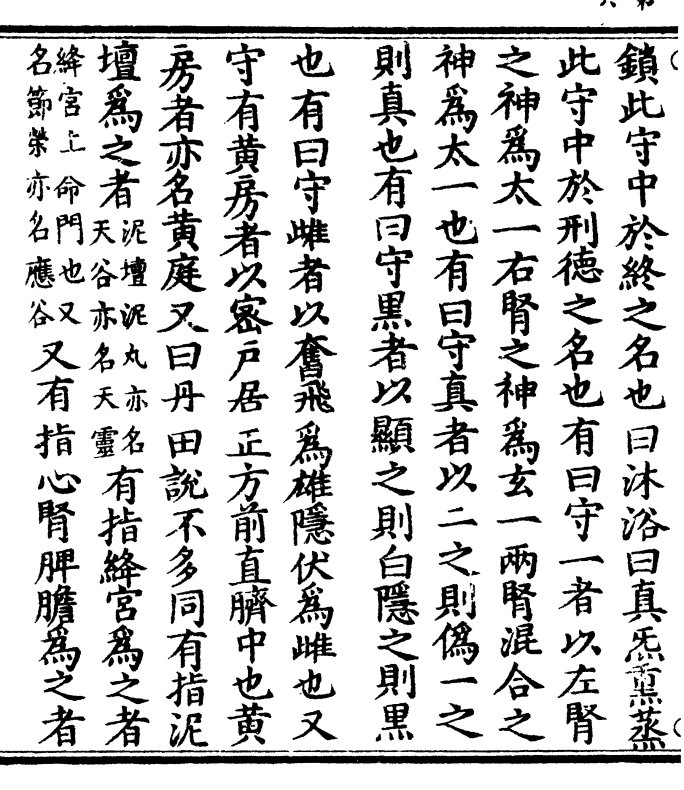 鎖此守中於終之名也曰沐浴曰真炁熏蒸
此守中於刑德之名也有曰守一者以左腎
之神爲太一右腎之神爲玄一兩腎混合之
神爲太一也有曰守真者以二之則僞一之
則真也有曰守黒者以顯之則白隱之則黒
也有曰守雌者以奮飛爲雄隱伏爲雌也又
守有黄房者以密戸居正方前直臍中也黄
房者亦名黄庭又曰丹田說不多同有指泥
壇爲之者泥壇泥丸亦名天谷亦名天靈有指絳宮爲之者
絳宮上命門也又名節榮亦名應谷又有指心腎脾膽爲之者